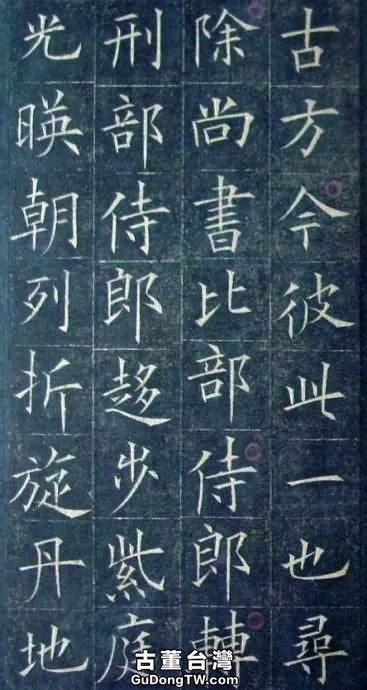 古方今彼此一也尋
除尚書比部侍郎轉
刑部侍郎趍步紫庭
光暎朝列折旋丹地
古董台灣
GuDongTW.com